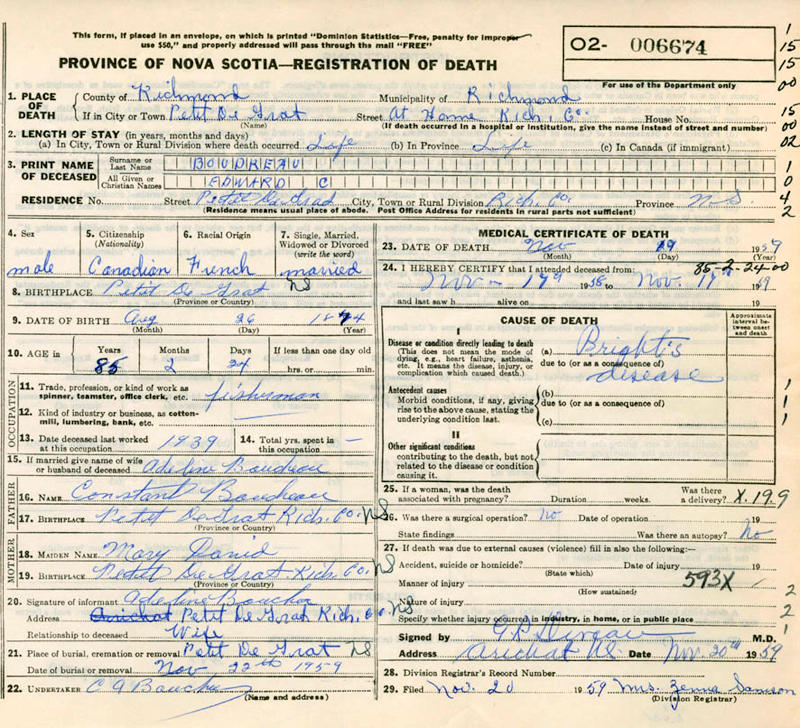 This form, if placed in an envelope, on which is printed "Dominion Statistics—Free, penalty for improper
use $50," and properly addressed will pass through the mail "FREE"
PROVINCE OF NOVA SCOTIA—REGISTRATION OF DEATH
O2- 006674
For use of the Department only
1. PLACE OF DEATH { County of Richmond Municipality of Richmond
If in City or Town Petit De Grat Street At Home Rich. Co. House No.
(Name) (If death occurred in a hospital or institution, give the name instead of street and number)
2. LENGTH OF STAY (in years, months and days)
(a) In City, Town or Rural Division where death occurred Life (b) In Province Life (c) In Canada (if immigrant)
3. PRINT NAME OF DECEASED { Surname or Last Name BOUDREAU
All Given or Christian Names EDWARD C
RESIDENCE No. Street Petit De Grat City, Town or Rural Division Rich. Co. Province N.S.
(Residence means usual place of abode. Post Office Address for residents in rural parts not sufficient)
4. Sex male
5. Citizenship (Nationality) Canadian
6. Racial Origin French
7. Single, Married, Widowed or Divorced (write the word) married
8. BIRTHPLACE Petit De Grat NS
(Province or Country)
9. DATE OF BIRTH Aug 26 1874
(Month) (Day) (Year)
10. AGE in Years Months Days If less than one day old
85 2 24 hrs. or min.
OCCUPATION
11. Trade, profession, or kind of work as spinner, teamster, office clerk, etc. fisherman
12. Kind of industry or business, as cotton-mill, lumbering, bank, etc.
13. Date deceased last worked at this occupation 1939 14. Total yrs. spent in this occupation —
15. If married give name of wife or husband of deceased Adeline Boudreau
FATHER
16. NAME Constant Boudreau
17. BIRTHPLACE Petit De Grat Rich. Co. NS
(Province or Country)
MOTHER
18. MAIDEN NAME Mary David
19. BIRTHPLACE Petit De Grat Rich. Co. NS
(Province or Country)
20. Signature of informant Adeline
Address Arichat Petit De Grat Rich. Co. NS
Relationship to deceased Wife
21. Place of burial, cremation or removal Petit De Grat NS
Date of burial or removal Nov 22th 1959
22. UNDERTAKER C A
(Name and address)
MEDICAL CERTIFICATE OF DEATH
23. DATE OF DEATH Nov 19 1959
(Month) (Day) (Year)
85-2-24-00
24. I HEREBY CERTIFY that I attended deceased from:
Nov — 19th 1958 to Nov. 19th 1959
and last saw h alive on 19
CAUSE OF DEATH
Approximate interval between onset and death
I
Disease or condition directly leading to death
(This does not mean the mode of dying, e.g., heart failure, asthenia, etc. It means the disease, injury, or complication which caused death.)
(a) Bright's disease
due to (or as a consequence of)
Antecedent causes
Morbid conditions, if any, giving rise to the above cause, stating the underlying condition last.
(b)
due to (or as a consequence of)
(c)
II
Other significant conditions
contributing to the death, but not related to the disease or condition causing it.
25. If a woman, was the death associated with pregnancy? Duration weeks. Was there a delivery? X.199
26. Was there a surgical operation? No Date of operation 19
State findings Was there an autopsy? No
27. If death was due to external causes (violence) fill in also the following:—
Accident, suicide or homicide? Date of injury 19
(State which)
Manner of injury 593X
(How sustained)
Nature of injury
Specify whether injury occurred in industry, in home, or in public place
Signed by M.D.
Address Arichat NS Date Nov. 20th 1959
28. Division Registrar's Record Number
29. Filed Nov. 20 1959 Mrs. Samson
(Division Registrar)
1
15
15
00
15
00
02
1
0
4
2
1
1
1
2
2